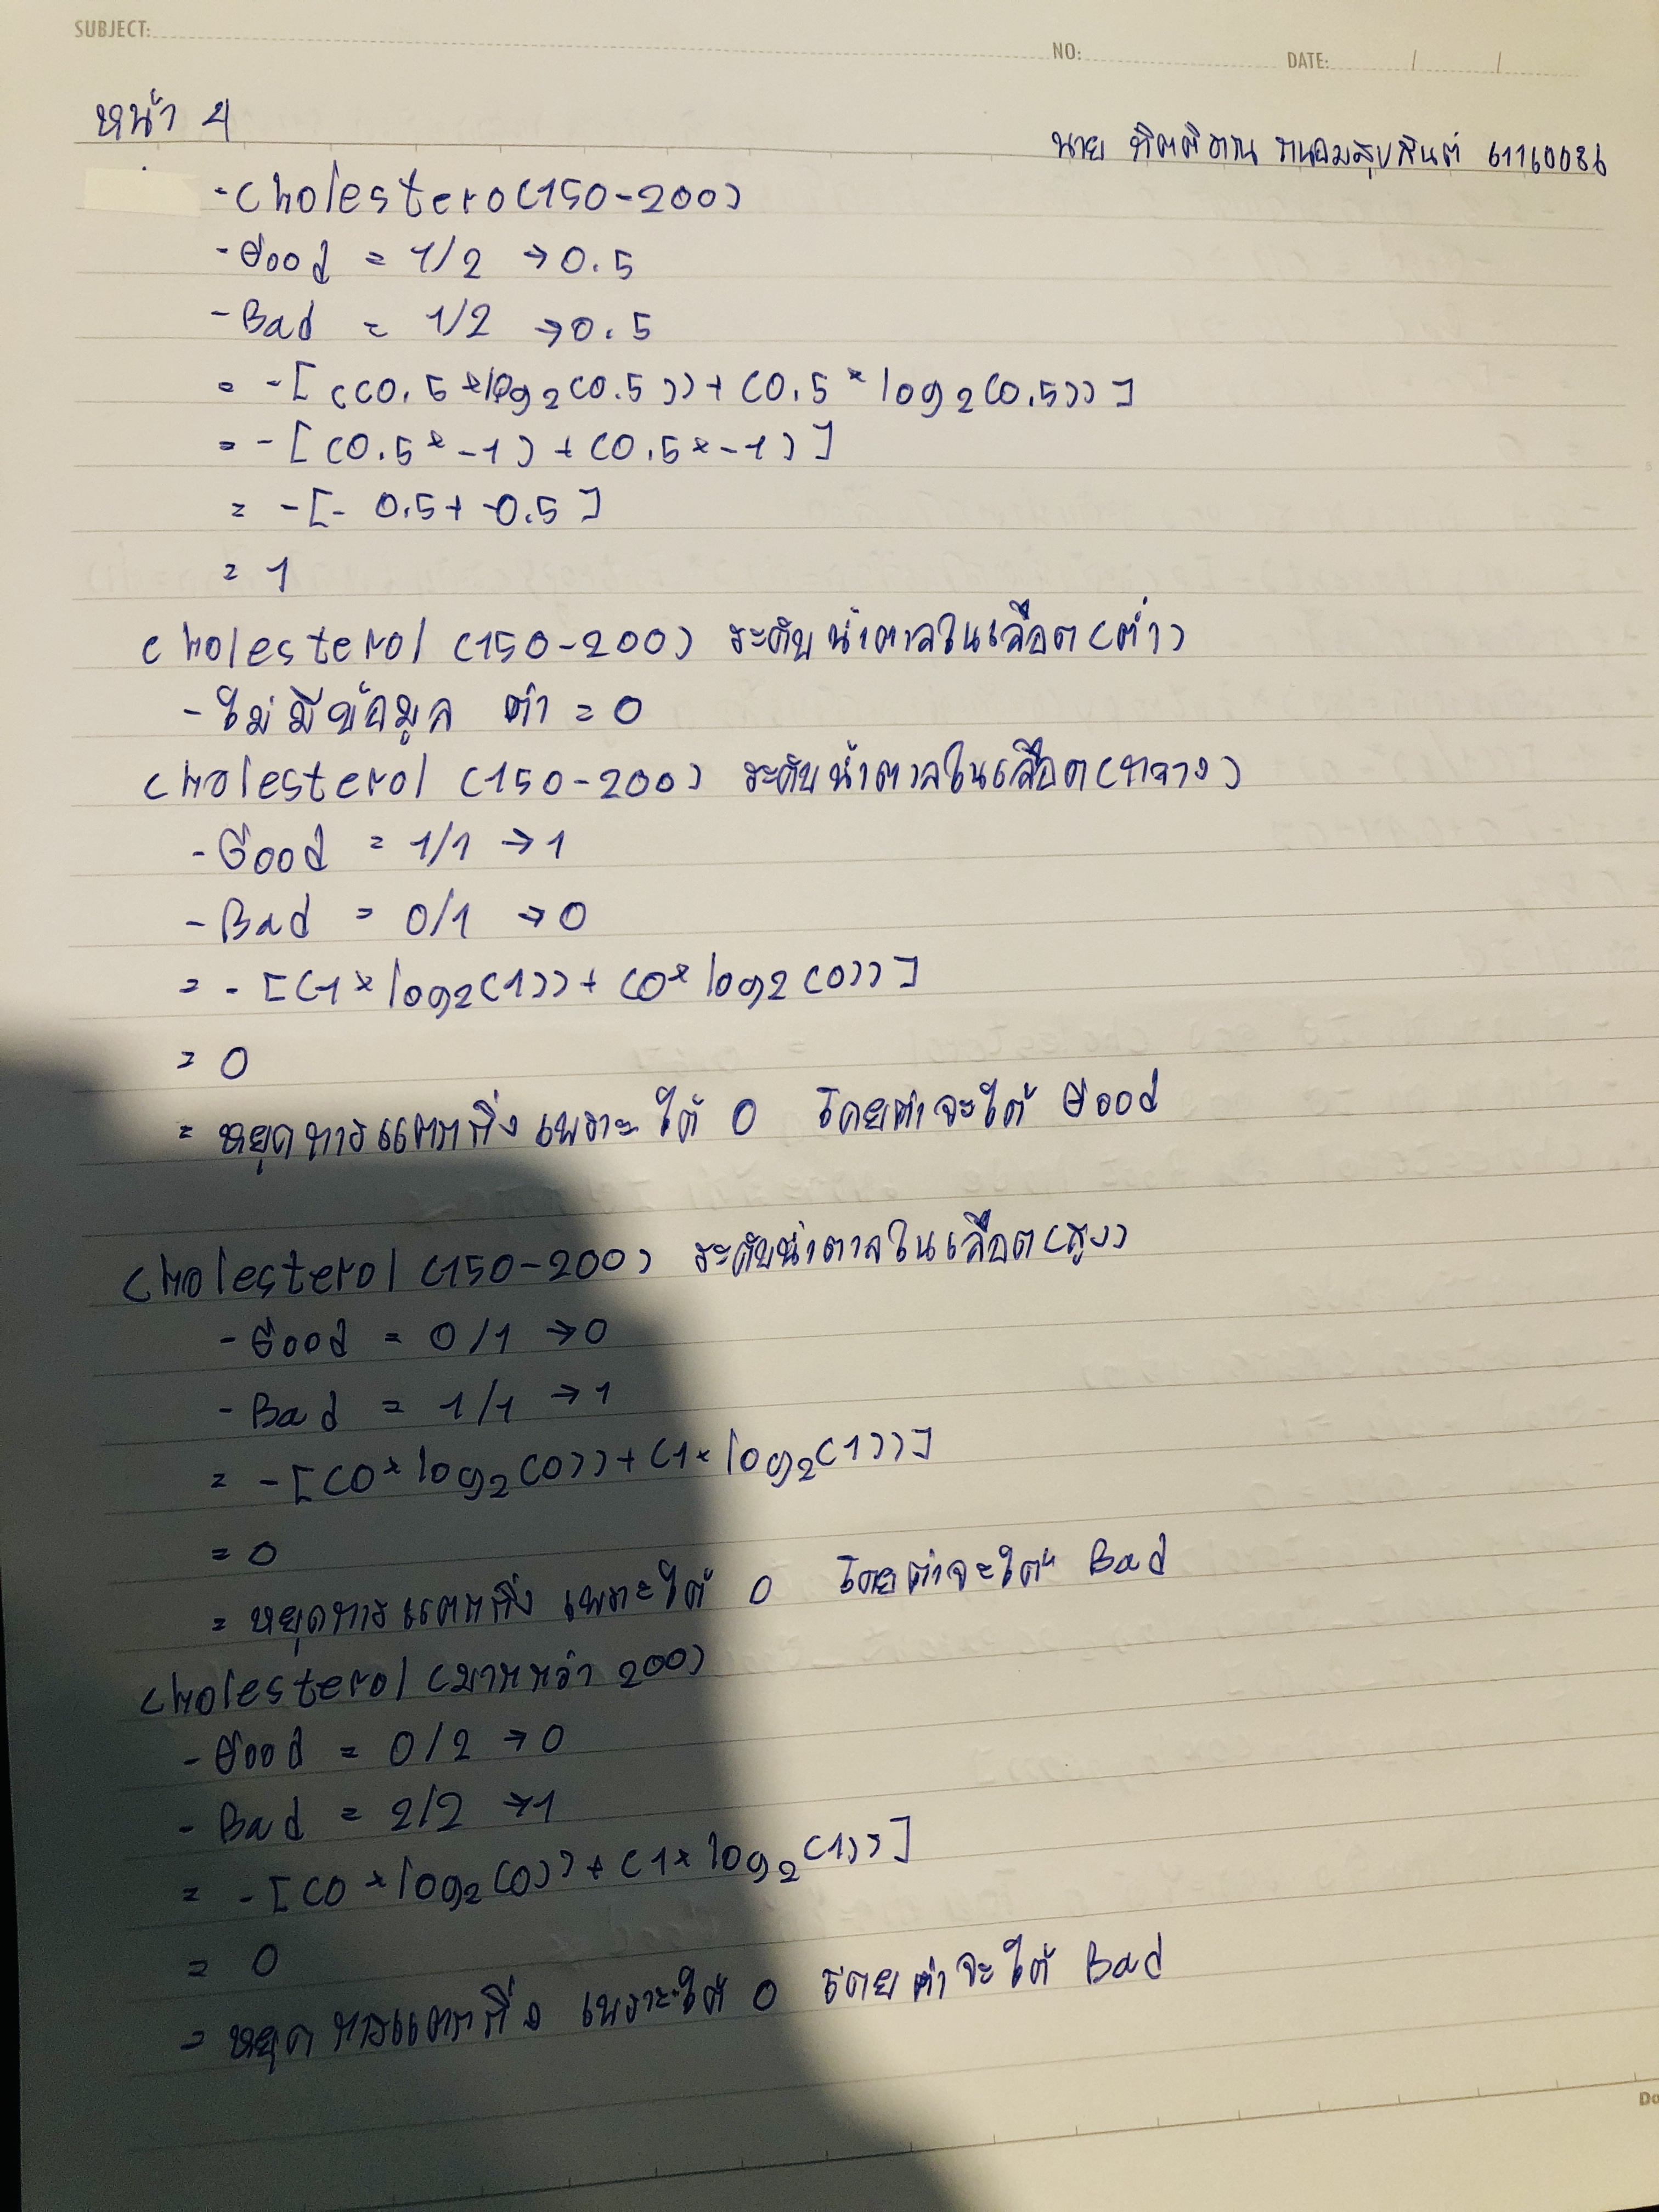 SUBJECT:
NO:
DATE: / /
หน้า 4
นาย กิตติภณ ถนอมสุขสันต์ 61160086
- Cholestero(150-200)
- Good = 1/2 → 0.5
- Bad = 1/2 → 0.5
= -[((0.5*log2(0.5))+(0.5*log2(0.5))]
= -[(0.5*-1)+(0.5*-1)]
= -[-0.5+-0.5]
= 1
Cholesterol (150-200) ระดับน้ำตาลในเลือด(ต่ำ)
- ไม่มีข้อมูล ค่า = 0
Cholesterol (150-200) ระดับน้ำตาลในเลือด(กลาง)
- Good = 1/1 → 1
- Bad = 0/1 → 0
= -[(1*log2(1))+(0*log2(0))]
= 0
= หยุดการแตกกิ่ง เพราะได้ 0 โดยค่าจะได้ Good
Cholesterol (150-200) ระดับน้ำตาลในเลือด(สูง)
- Good = 0/1 → 0
- Bad = 1/1 → 1
= -[(0*log2(0))+(1*log2(1))]
= 0
= หยุดการแตกกิ่ง เพราะได้ 0 โดยค่าจะได้ Bad
Cholesterol (มากกว่า 200)
- Good = 0/2 → 0
- Bad = 2/2 → 1
= -[(0*log2(0))+(1*log2(1))]
= 0
= หยุดการแตกกิ่ง เพราะได้ 0 โดยค่าจะได้ Bad